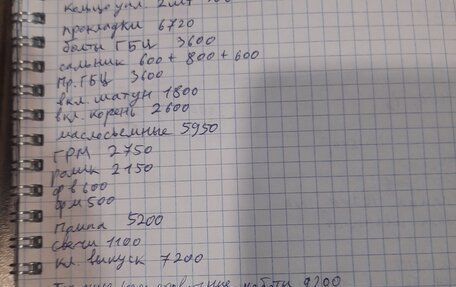 Кольцо упл. 2шт
прокладки 6720
болты ГБЦ 3600
сальник 600 + 800 + 600
Пр. ГБЦ 3600
вкл. шатун 1800
вкл. корень 2600
маслосъемные 5950
ГРМ 2750
ролик 2150
ф в 600
фм 500
Помпа 5200
Свечи 1100
кл. выпуск 7200
работы 9200